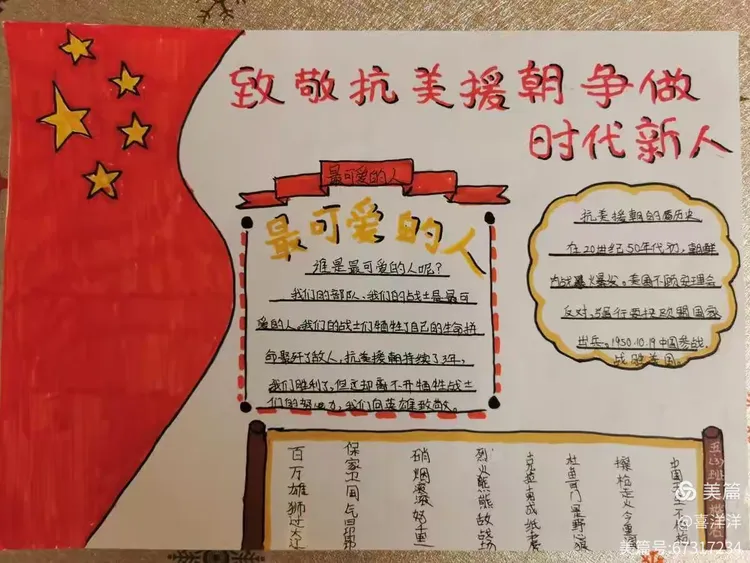 致敬抗美援朝争做
时代新人
最可爱的人
最可爱的人
谁是最可爱的人呢？
我们的部队、我们的战士是最可
爱的人，我们的战士们牺牲了自己的生命拼
命打了敌人，抗美援朝持续了3年，
我们胜利了，但这却离不开牺牲战士
们的努力，我们向英雄致敬。
抗美援朝的历史
在20世纪50年代初，朝鲜
内战爆发。美国不顾安理会
反对，强行要挟欧盟国家
出兵。1950.10.19中国参战，
战胜美国。
百万雄狮过大江
保家卫国气昂昂
硝烟滚滚好重
烈火熊熊敌战场
克莱奥成纸妻
杜鲁门是野心狼
擦枪走火今重
中国不
美篇
@喜洋洋
美篇号:67317234